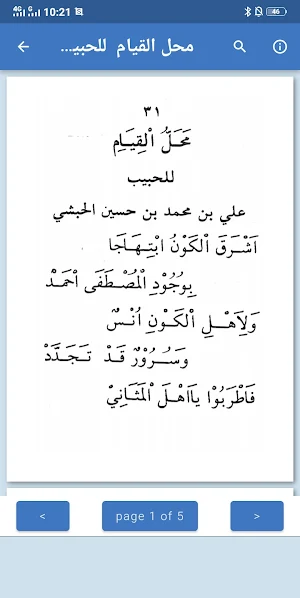 4G G 10:21 46
محل القيام للحبيـ...
٣١
مَحَلُّ الْقِيَامِ
للحبيب
علي بن محمد بن حسين الحبشي
اَشْرَقَ الْكَوْنُ ابْتِهَاجَا
بِوُجُوْدِ الْمُصْطَفَى احْمَدْ
وَلِاَهْلِ الْكَوْنِ اُنْسٌ
وَسُرُوْرٌ قَدْ تَجَدَّدْ
فَاطْرَبُوْا يَااَهْلَ الْمَثَانِيْ
< page 1 of 5 >